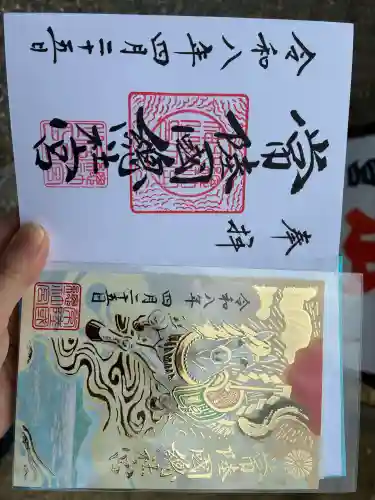 奉拝
常陸國總社宮
令和八年四月二十五日
常陸國總社宮
令和八年四月二十五日